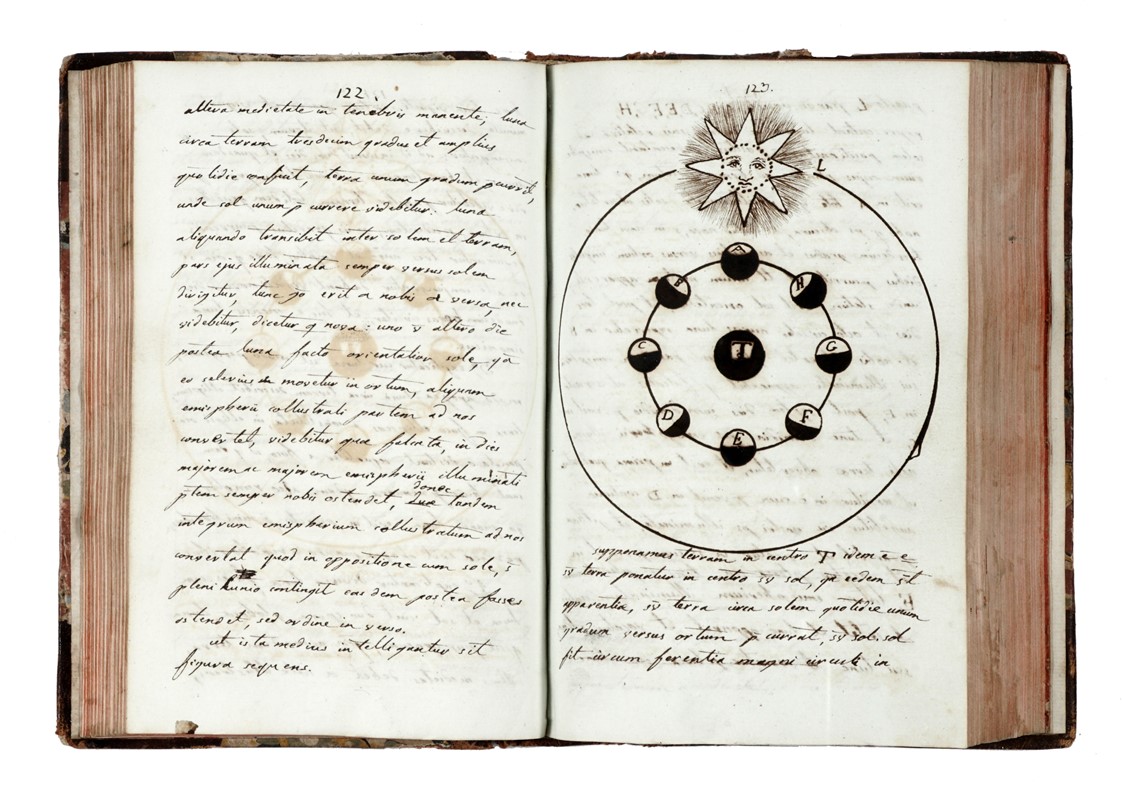 122.
altera medietate in tenebris manente, luna
circa terram tresdecim gradus et amplius
quotidie conficit, terra unum gradum percurrit,
unde sol unum p currere videbitur. luna
aliquando transibit inter solem et terram,
pars ejus illuminata semper versus solem
dirigitur, tunc erit a nobis a versa, nec
videbitur, dicetur q nova: uno v altero die
postea luna facta orientalior sole,
eo celerius movetur in ortum, aliquam
emispherii collustrati partem ad nos
convertet, videbitur quae falcata, in dies
majorem ac majorem emispherii illuminati
ptem semper nobis ostendet, donec tandem
integrum emispherium collustratum ad nos
convertat quod in oppositione cum sole, s
plenilunio contingit easdem postea fasses
ostendet, sed ordine in verso.
ut ista medius intelligantur sit
figura sequens.
123.
L
A
B
H
C
T
G
D
F
E
supponamus terram in centro T idem e e
sv terra ponatur in centro sv sol, eedem st
apparentia, sv terra circa solem quotidie unum
gradum versus ortum p currat, sv sol. sol
fit circum ferentia circuli in